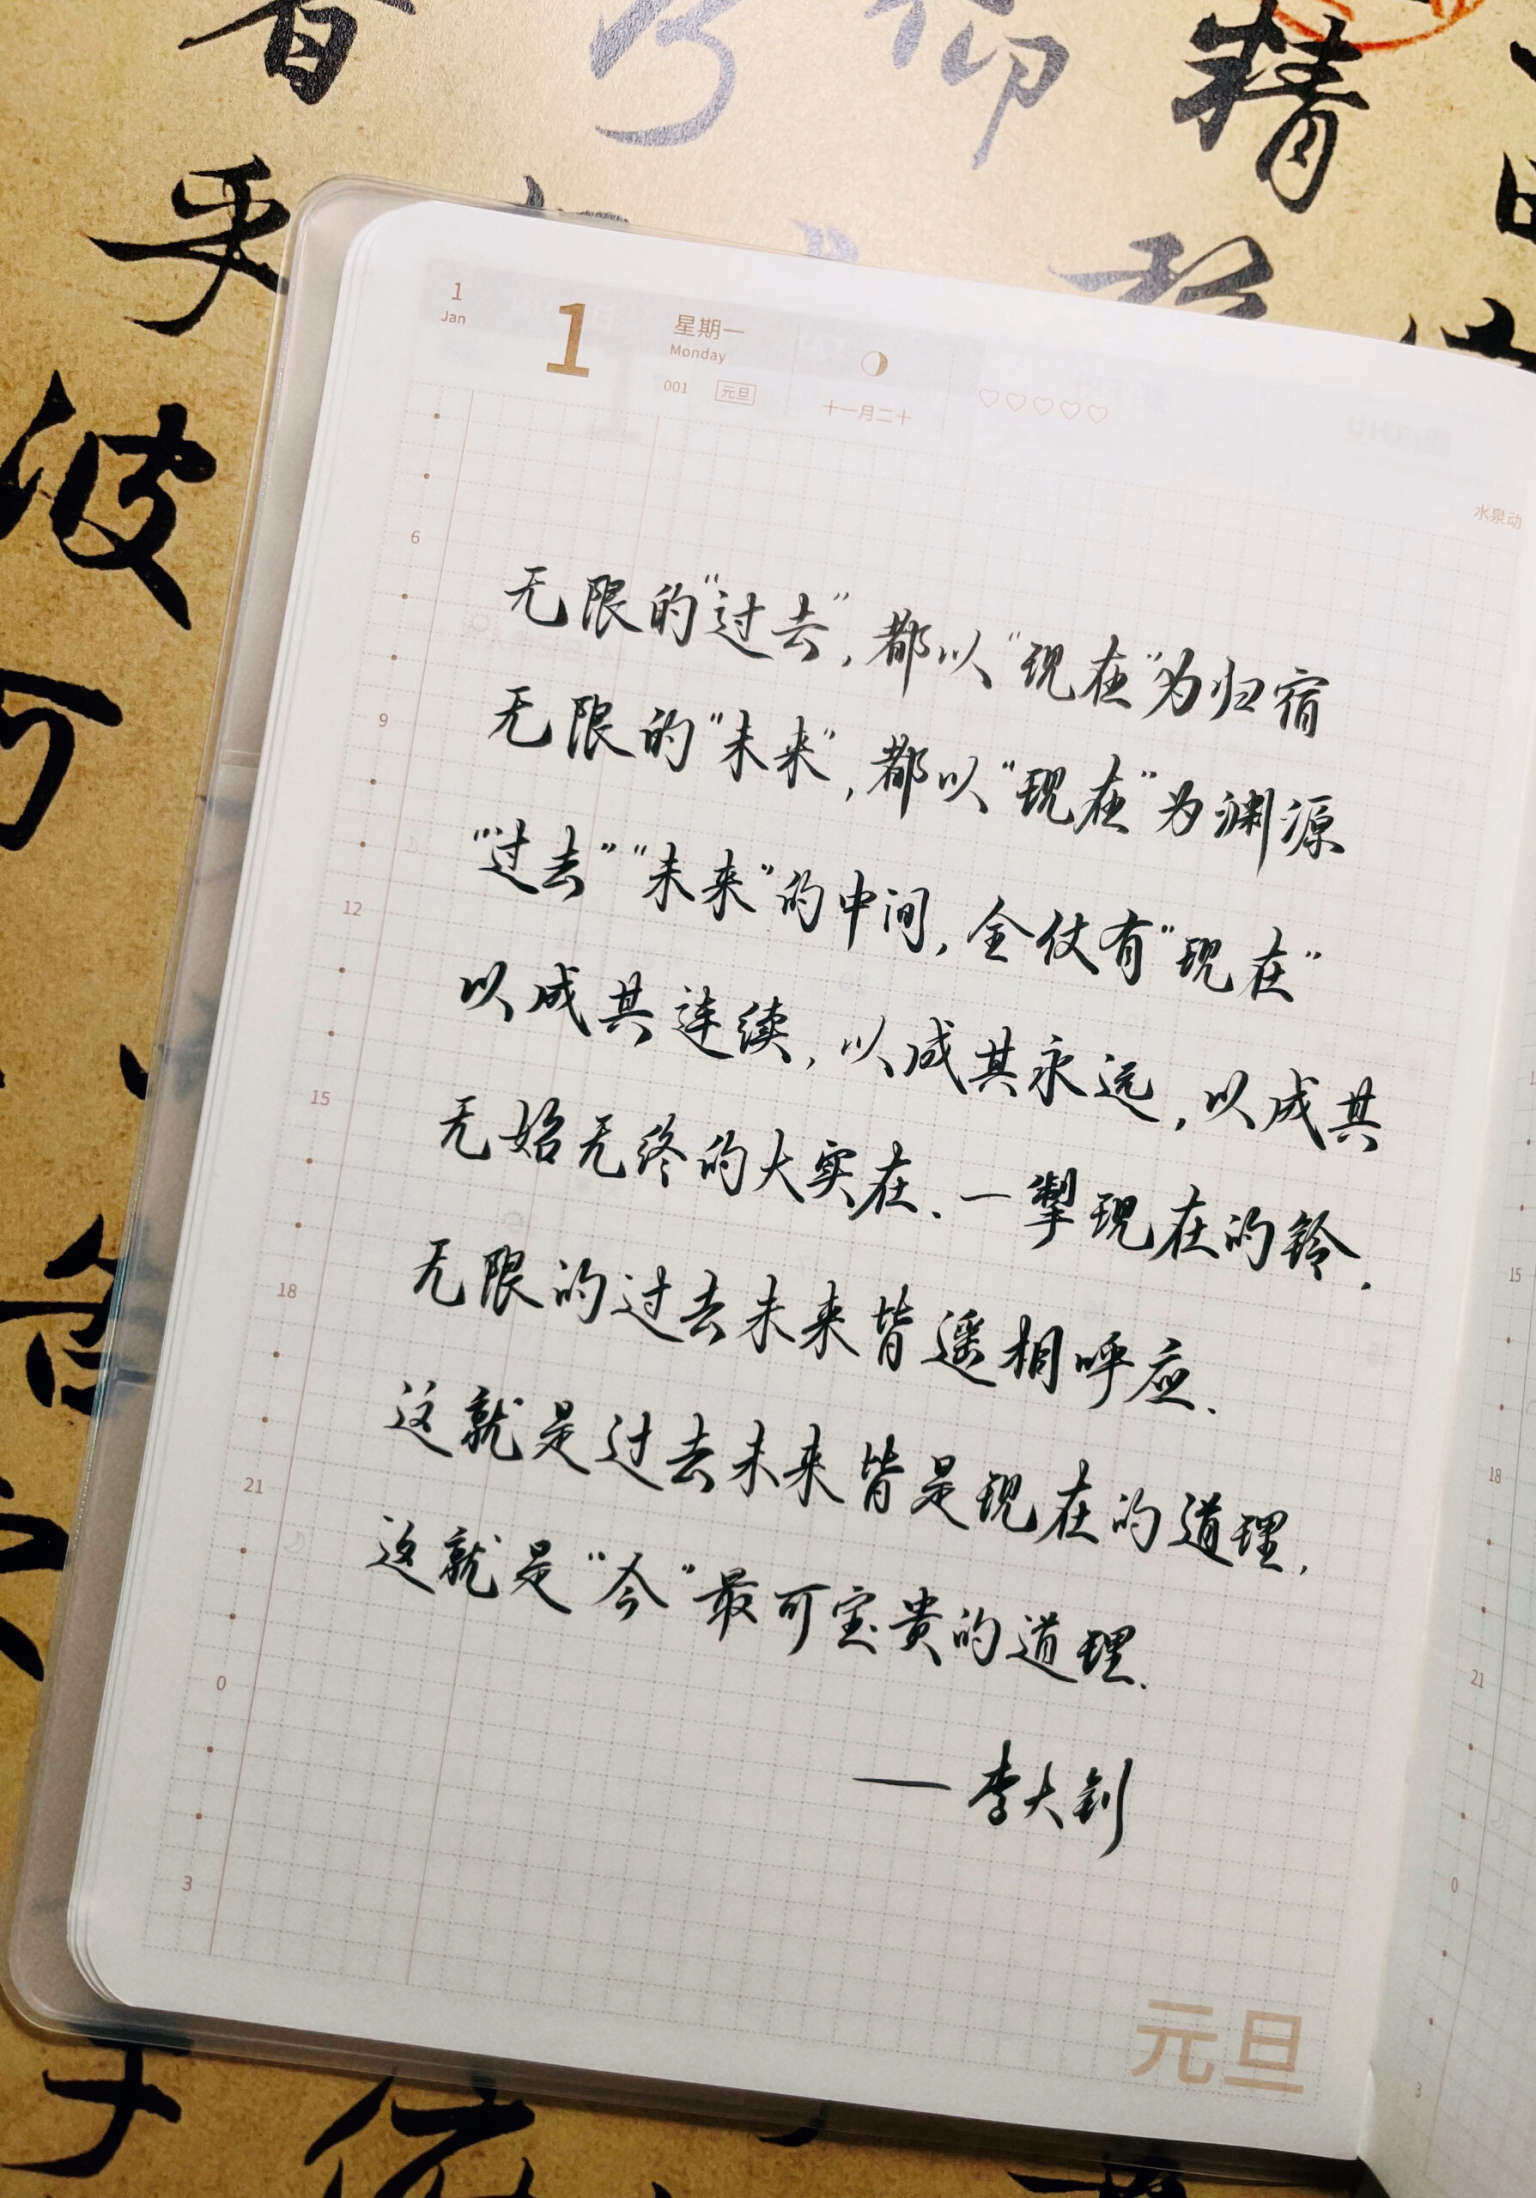 1
Jan
1
星期一
Monday
001 元旦
十一月二十
水泉动
6
9
12
15
18
21
0
3
无限的“过去”,都以“现在”为归宿
无限的“未来”,都以“现在”为渊源
“过去”“未来”的中间,全仗有“现在”
以成其连续,以成其永远,以成其
无始无终的大实在.一掣现在的铃.
无限的过去未来皆遥相呼应.
这就是过去未来皆是现在的道理.
这就是“今”最可宝贵的道理.
——李大钊
元旦
15
18
21
0
3